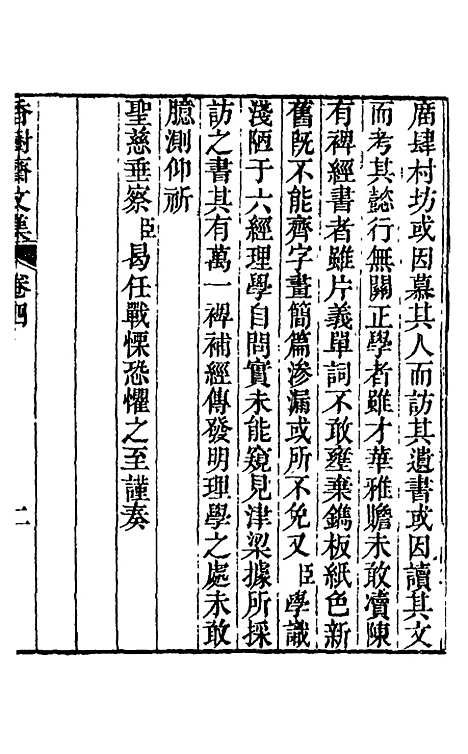 廣肆村坊或因慕其人而訪其遺書或因讀其文
而考其懿行無關正學者雖才華雅贍未敢瀆陳
有裨經書者雖片義單詞不敢壅棄鐫板紙色新
舊既不能齊字畫簡篇滲漏或所不免又臣學識
淺陋于六經理學自問實未能窺見津梁據所採
訪之書其有萬一裨補經傳發明理學之處未敢
臆測仰祈
聖慈垂察臣曷任戰慄恐懼之至謹奏
香樹齋文集 卷四 二